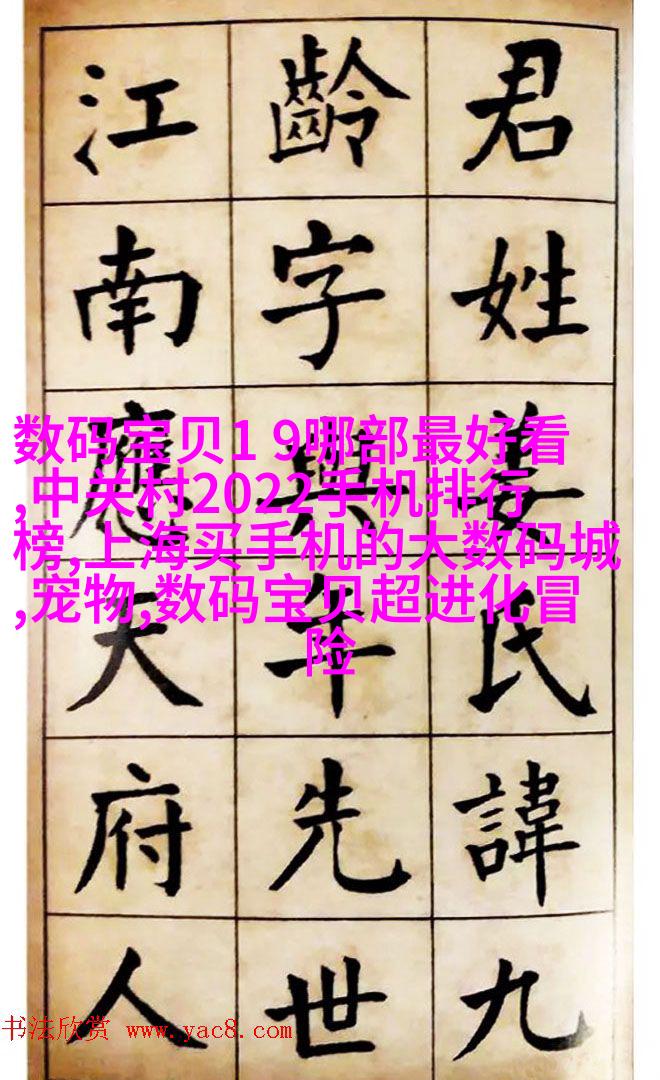 君姓姜氏諱九
齡字與年先世
江南應天府人
数码宝贝1 9哪部最好看
,中关村2022手机排行
榜,上海买手机的大数码城
,宠物,数码宝贝超进化冒
险
书法欣赏 www.yac8.com